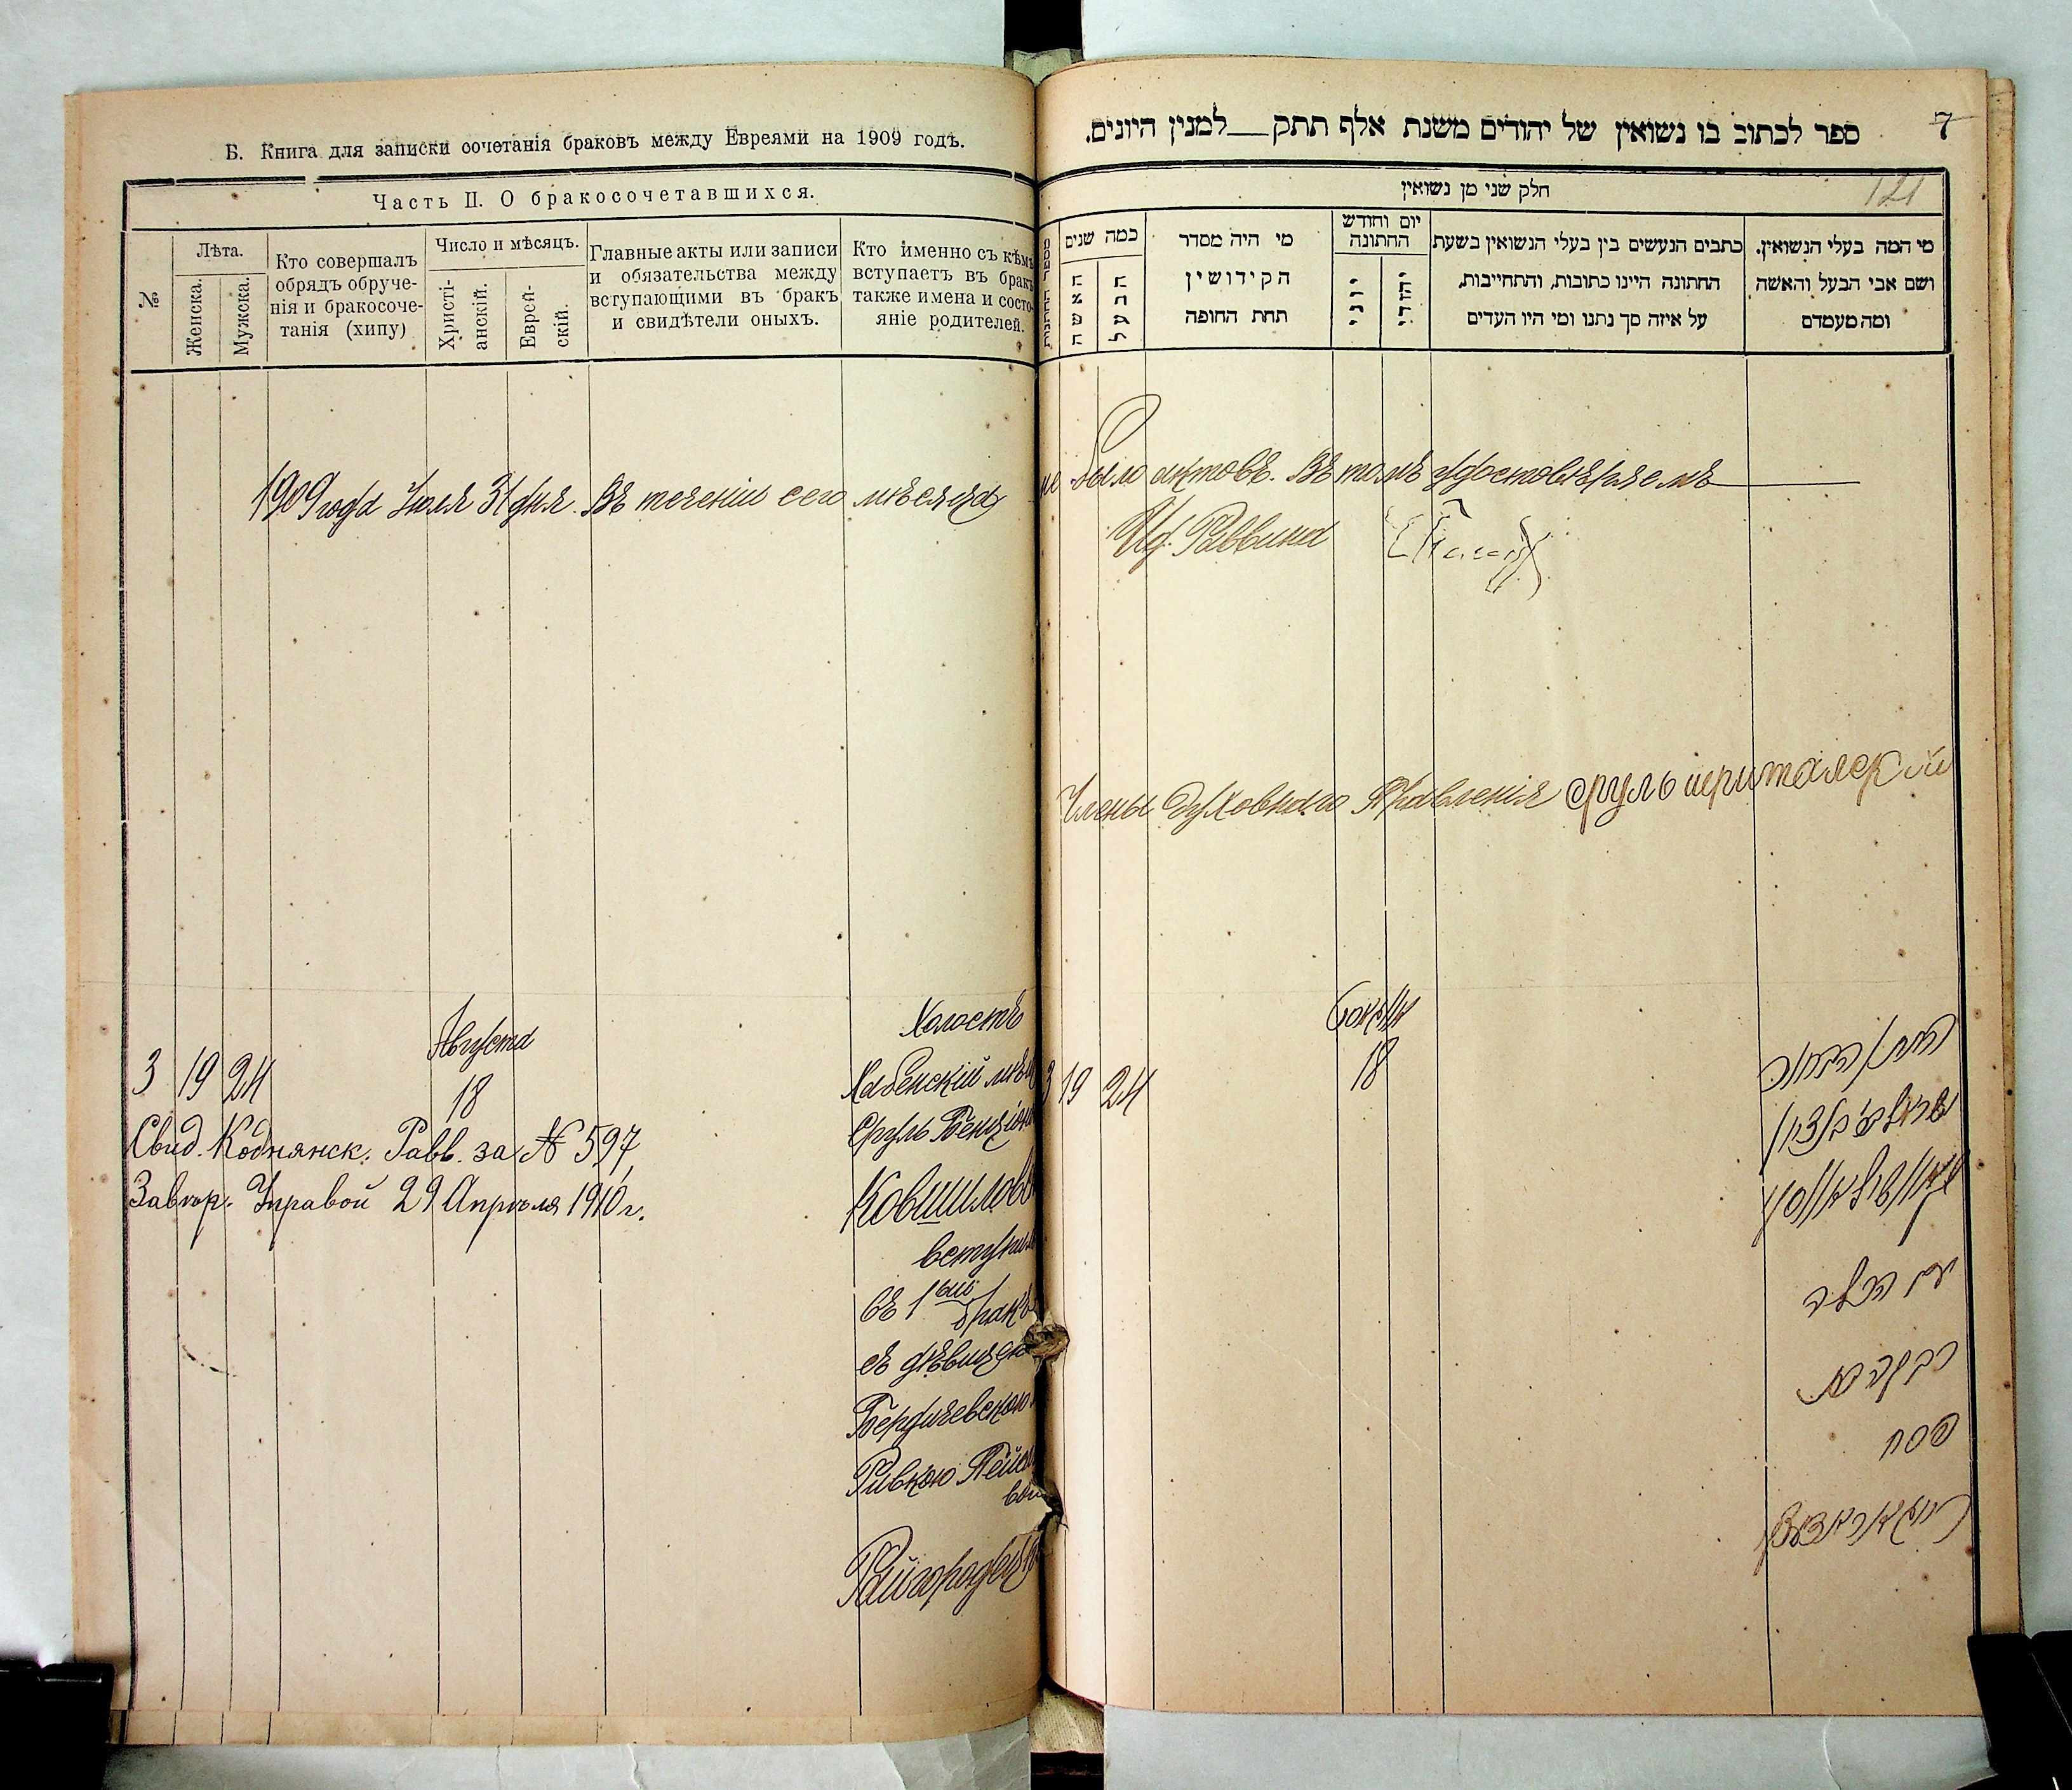 Б. Книга для записки сочетанія браковъ между Евреями на 1909 годъ.
Часть II. О бракосочетавшихся.
№
Лѣта.
Женска.
Мужска.
Кто совершалъ
обрядъ обруче-
нія и бракосоче-
танія (хипу)
Число и мѣсяцъ.
Христі-
анскій.
Еврей-
скій.
Главные акты или записи
и обязательства между
вступающими въ бракъ
и свидѣтели оныхъ.
Кто именно съ кѣмъ
вступаетъ въ бракъ
также имена и состо-
яніе родителей.
1909 года Іюля 31 дня. Въ теченіи сего мѣсяца
Августа
3 19 24 18
Свид. Коднянск. Равв. за № 597,
Завѣр. Управой 29 Апрѣля 1910 г.
Холостъ
Хабенскій мѣщ
Сруль Бенціон
Ковшиловъ
вступил
въ 1ый
бракъ
съ дѣвицею
Бердичевскою
Ривкою Пейса
вой
Райгородец
7
ספר לכתוב בו נשואין של יהודים משנת אלף תתק למנין היונים.
121
חלק שני מן נשואין
מספר החתנות
כמה שנים
האשה
הבעל
מי היה מסדר
הקידושין
תחת החופה
יום וחודש
החתונה
יוני
יהודי
כתבים הנעשים בין בעלי הנשואין בשעת
החתונה היינו כתובות, והתחייבות,
על איזה סך נתנו ומי היו העדים
מי המה בעלי הנשואין.
ושם אבי הבעל והאשה
ומה מעמדם
не было актовъ. Въ томъ удостовѣряемъ
Ид. Раввина
Члены Духовнаго Правленія сруль шриталский
אווגוסט
3 19 24 18
החתן הבחור
ישראל ב׳ בן ציון
עם הכלה
רבקה בת
פסח